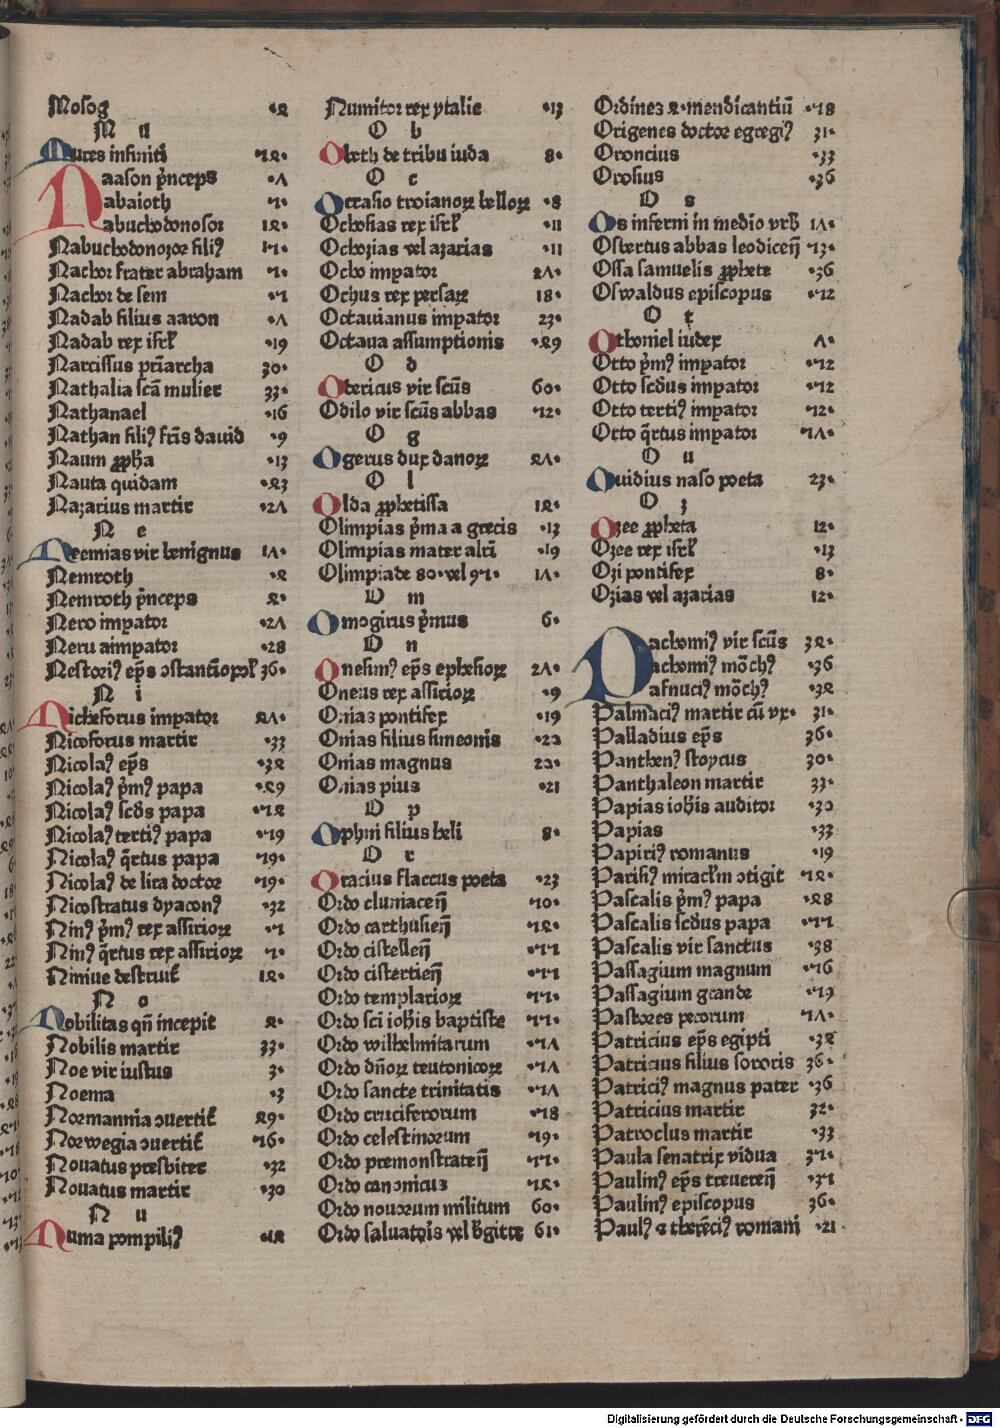 Mosog ·2
M u
Mures infiniti
Naason p̄nceps
Nabaioth
Nabuchodonosor
Nabuchodonozor filiꝰ
Nachor frater abraham
Nachor de sem
Nadab filius aaron
Nadab rex isrł ·19
Narcissus pr̄iarcha 30·
Nathalia scā mulier 33·
Nathanael ·16
Nathan filiꝰ fr̄is dauid ·9
Naum ꝓpħa ·13
Nauta quidam
Nazarius martir
N e
Neemias vir benignus
Nemroth
Nemroth p̄nceps
Nero imꝑator
Neru aimpator ·28
Nestoriꝰ ep̄s ↄstantiōpoł 36·
N i
Nicheforus impator
Nicoforus martir ·33
Nicolaꝰ ep̄s
Nicolaꝰ p̄mꝰ papa
Nicolaꝰ scđs papa
Nicolaꝰ tertiꝰ papa
Nicolaꝰ q̄rtus papa
Nicolaꝰ de lira doctor
Nicostratus dyaconꝰ ·32
Ninꝰ p̄mꝰ rex assirioꝝ
Ninꝰ q̄rtus rex assirioꝝ
Niniue destruit̄
N o
Nobilitas qn̄ incepit
Nobilis martir 33·
Noe vir iustus 3·
Noema ·3
Normannia ↄuertit̄
Norwegia ↄuertit̄
Nouatus presbiter ·32
Nouatus martir ·30
N u
Numa pompiliꝰ
Numitor rex ytalie ·13
O b
Obeth de tribu iuda 8·
O c
Occasio troianoꝝ belloꝝ ·8
Ochosias rex isrł ·11
Ochozias vel azarias ·11
Ocho imꝑator
Ochus rex persaꝝ 18·
Octauianus imꝑator 23·
Octaua assumptionis
O d
Odericus vir scūs 60·
Odilo vir scūs abbas
O g
Ogerus dux danoꝝ
O l
Olda ꝓphetissa
Olimpias p̄ma a grecis ·13
Olimpias mater alr̄i ·19
Olimpiade 80· vel 97·
O m
Omogirus p̄mus 6·
O n
Onesimꝰ ep̄s ephesioꝝ
Oneus rex assirioꝝ ·9
Onias pontifex ·19
Onias filius simeonis ·22
Onias magnus
Onias pius ·21
O p
Ophni filius heli 8·
O r
Oracius flaccus poeta ·23
Ordo cluniaceñ
Ordo carthusieñ
Ordo cistelleñ
Ordo cistertieñ
Ordo templarioꝝ
Ordo sc̄i ioħis baptiste
Ordo wilhelmitarum
Ordo dn̄oꝝ teutonicoꝝ
Ordo sancte trinitatis
Ordo cruciferorum
Ordo celestinorum
Ordo premonstrateñ
Ordo canonicus
Ordo nouorum militum 60·
Ordo saluatoris vel b̄gitte 61·
Ordines 4 mendicantiū
Origenes doctor egregiꝰ 31·
Oroncius ·33
Orosius ·36
O s
Os inferni in medio vrb̄
Ostertus abbas leodiceñ
Ossa samuelis ꝓphete ·36
Oswaldus episcopus
O t
Othoniel iudex
Otto p̄mꝰ imꝑator
Otto scđus imꝑator
Otto tertiꝰ imꝑator
Otto q̄rtus imꝑator
O u
Ouidius naso poeta 23·
O z
Ozee ꝓpheta 12·
Ozee rex isrł ·13
Ozi pontifex 8·
Ozias vel azarias 12·
Pachomiꝰ vir scūs
Pachomiꝰ mōchꝰ ·36
Pafnuciꝰ mōchꝰ
Palmaciꝰ martir cū vx· 31·
Palladius ep̄s 36·
Panthenꝰ stoycus 30·
Panthaleon martir 33·
Papias ioħis auditor ·30
Papias ·33
Papiriꝰ romanus ·19
Parisiꝰ miracłm ↄtigit
Pascalis p̄mꝰ papa
Pascalis scđus papa
Pascalis vir sanctus ·38
Passagium magnum
Passagium grande
Pastores pecorum
Patricius ep̄s egipti
Patricius filius sororis 36·
Patriciꝰ magnus pater ·36
Patricius martir 32·
Patroclus martir ·33
Paula senatrix vidua
Paulinꝰ ep̄s treuereñ
Paulinꝰ episcopus 36·
Paulꝰ et therēciꝰ romani ·21
Digitalisierung gefördert durch die Deutsche Forschungsgemeinschaft - DFG